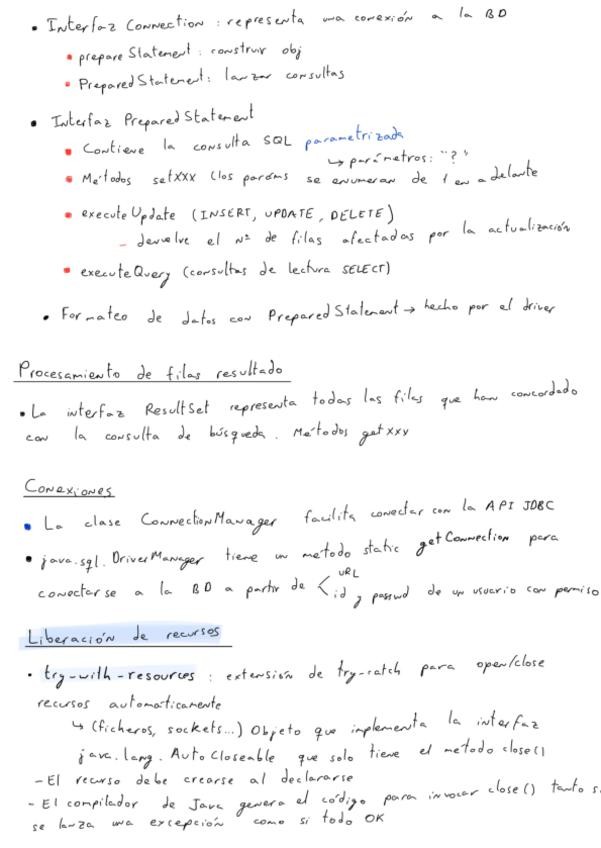 • Interfaz Connection : representa una conexión a la BD
• prepareStatement : construir obj
• PreparedStatement: lanzar consultas
• Interfaz PreparedStatement
• Contiene la consulta SQL parametrizada
↳ parámetros: "?"
• Métodos setXXX (los paráms se enumeran de 1 en adelante
• executeUpdate (INSERT, UPDATE, DELETE)
– devuelve el Nº de filas afectadas por la actualización
• executeQuery (consultas de lectura SELECT)
• Formateo de datos con PreparedStatement → hecho por el driver
Procesamiento de filas resultado
• La interfaz ResultSet representa todas las filas que han concordado
con la consulta de búsqueda. Métodos getxxy
Conexiones
• La clase ConnectionManager facilita conectar con la API JDBC
• java.sql.DriverManager tiene un metodo static getConnection para
conectarse a la BD a partir de < URL
id y passwd de un usuario con permiso
Liberación de recursos
• try-with-resources : extensión de try-catch para open/close
recursos automáticamente
↳ (ficheros, sockets...) Objeto que implementa la interfaz
java.lang.AutoCloseable que solo tiene el metodo close()
– El recurso debe crearse al declararse
– El compilador de Java genera el código para invocar close() tanto s
se lanza una excepción como si todo OK